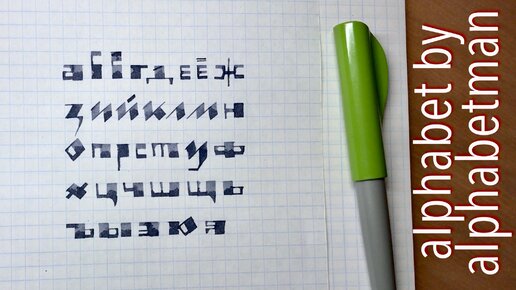 абвгдеёж
зийклмн
опрстуф
хцчшщь
ъыэюя
alphabet by
alphabetman